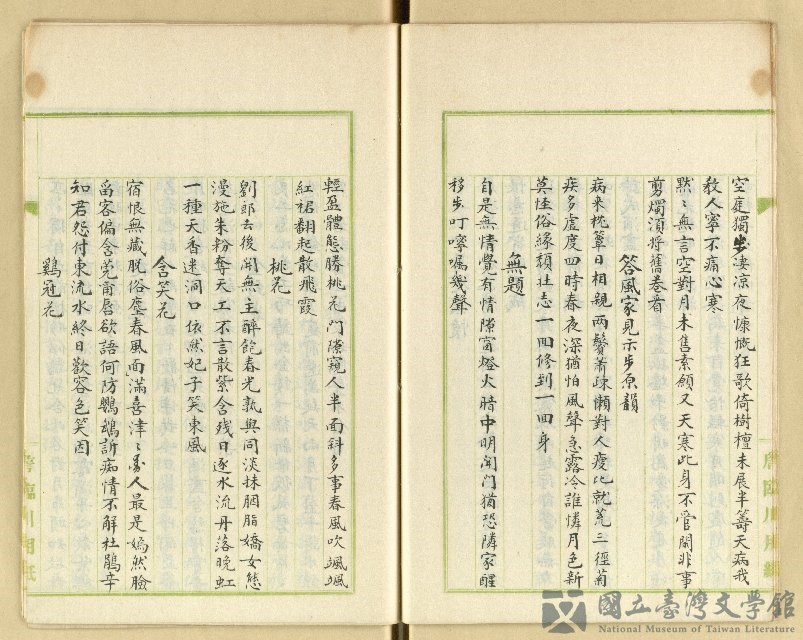 空庭獨步凄涼夜慷慨狂歌倚樹檀未展半籌天病我
教人寧不痛心寒
默々無言空對月未售素願又天寒此身不管閒非事
剪燭須將舊卷看
答風家見示步原韻
病來枕簟日相親兩鬢蕭疎懶對人瘦比就荒三徑菊
疾多虛度四時春夜深猶怕風聲急露冷誰憐月色新
莫怪俗緣頹壯志一回修到一回身
無題
自是無情覺有情隙窗燈火暗中明開門猶恐隣家醒
移步叮嚀囑幾聲
輕盈體態勝桃花門隙窺人半面斜多事春風吹颯颯
紅裙翻起散飛霞
桃花
劉郎去後開無主醉飽春光孰與同淡抹胭脂嬌女態
漫施朱粉奪天工不言散紫含殘日逐水流丹落晚虹
一種天香迷洞口依然妃子笑東風
含笑花
宿恨無藏脫俗塵春風面滿喜津々人最是嫣然臉
留客偏含莞爾唇欲語何防鸚鵡訴痴情不解杜鵑辛
知君怨付東流水終日歡容色笑因
鷄冠花
詹臨川用紙
國立臺灣文學館
National Museum of Taiwan Literature